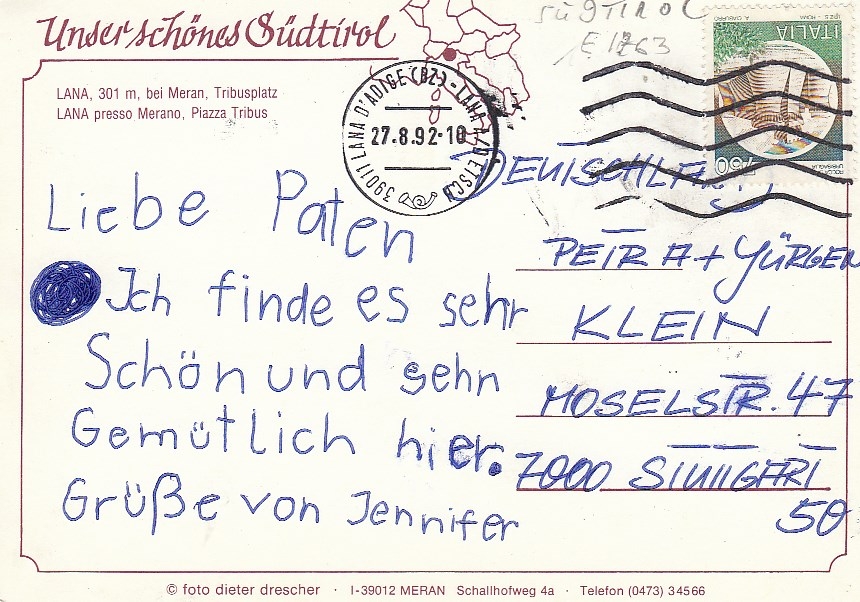 Unser schönes Südtirol
SÜDTIROL
E 1763
LANA, 301 m, bei Meran, Tribusplatz
LANA presso Merano, Piazza Tribus
39011 LANA D'ADIGE (BZ) - LANA A/D ETSCH
27.8.92-10
ITALIA
750
DEUTSCHLAND
Liebe Paten
Ich finde es sehr
Schön und sehn
Gemütlich hier.
Grüße von Jennifer
PETRA + JÜRGEN
KLEIN
MOSELSTR. 47
7000 STUTTGART
50
© foto dieter drescher · I-39012 MERAN Schallhofweg 4a · Telefon (0473) 34566